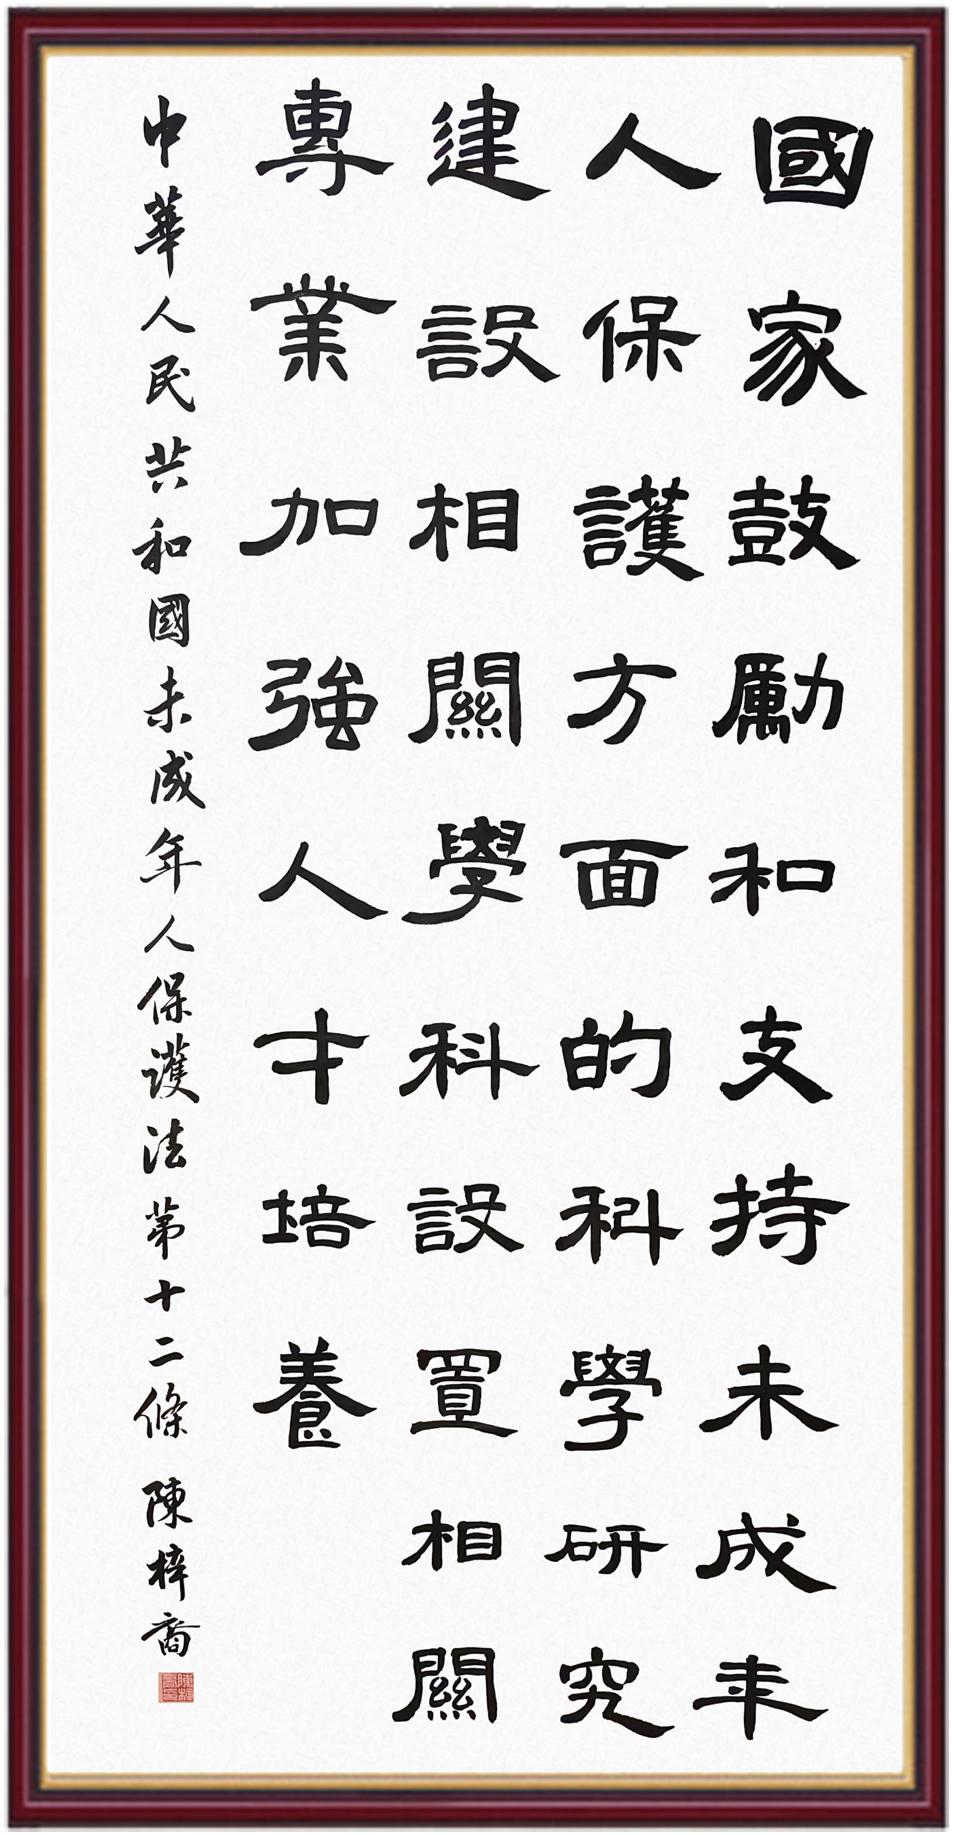 國家鼓勵和支持未成年
人保護方面的科學研究
建設相關學科設置相關
專業加強人才培養
中華人民共和國未成年人保護法第十二條 陳梓裔